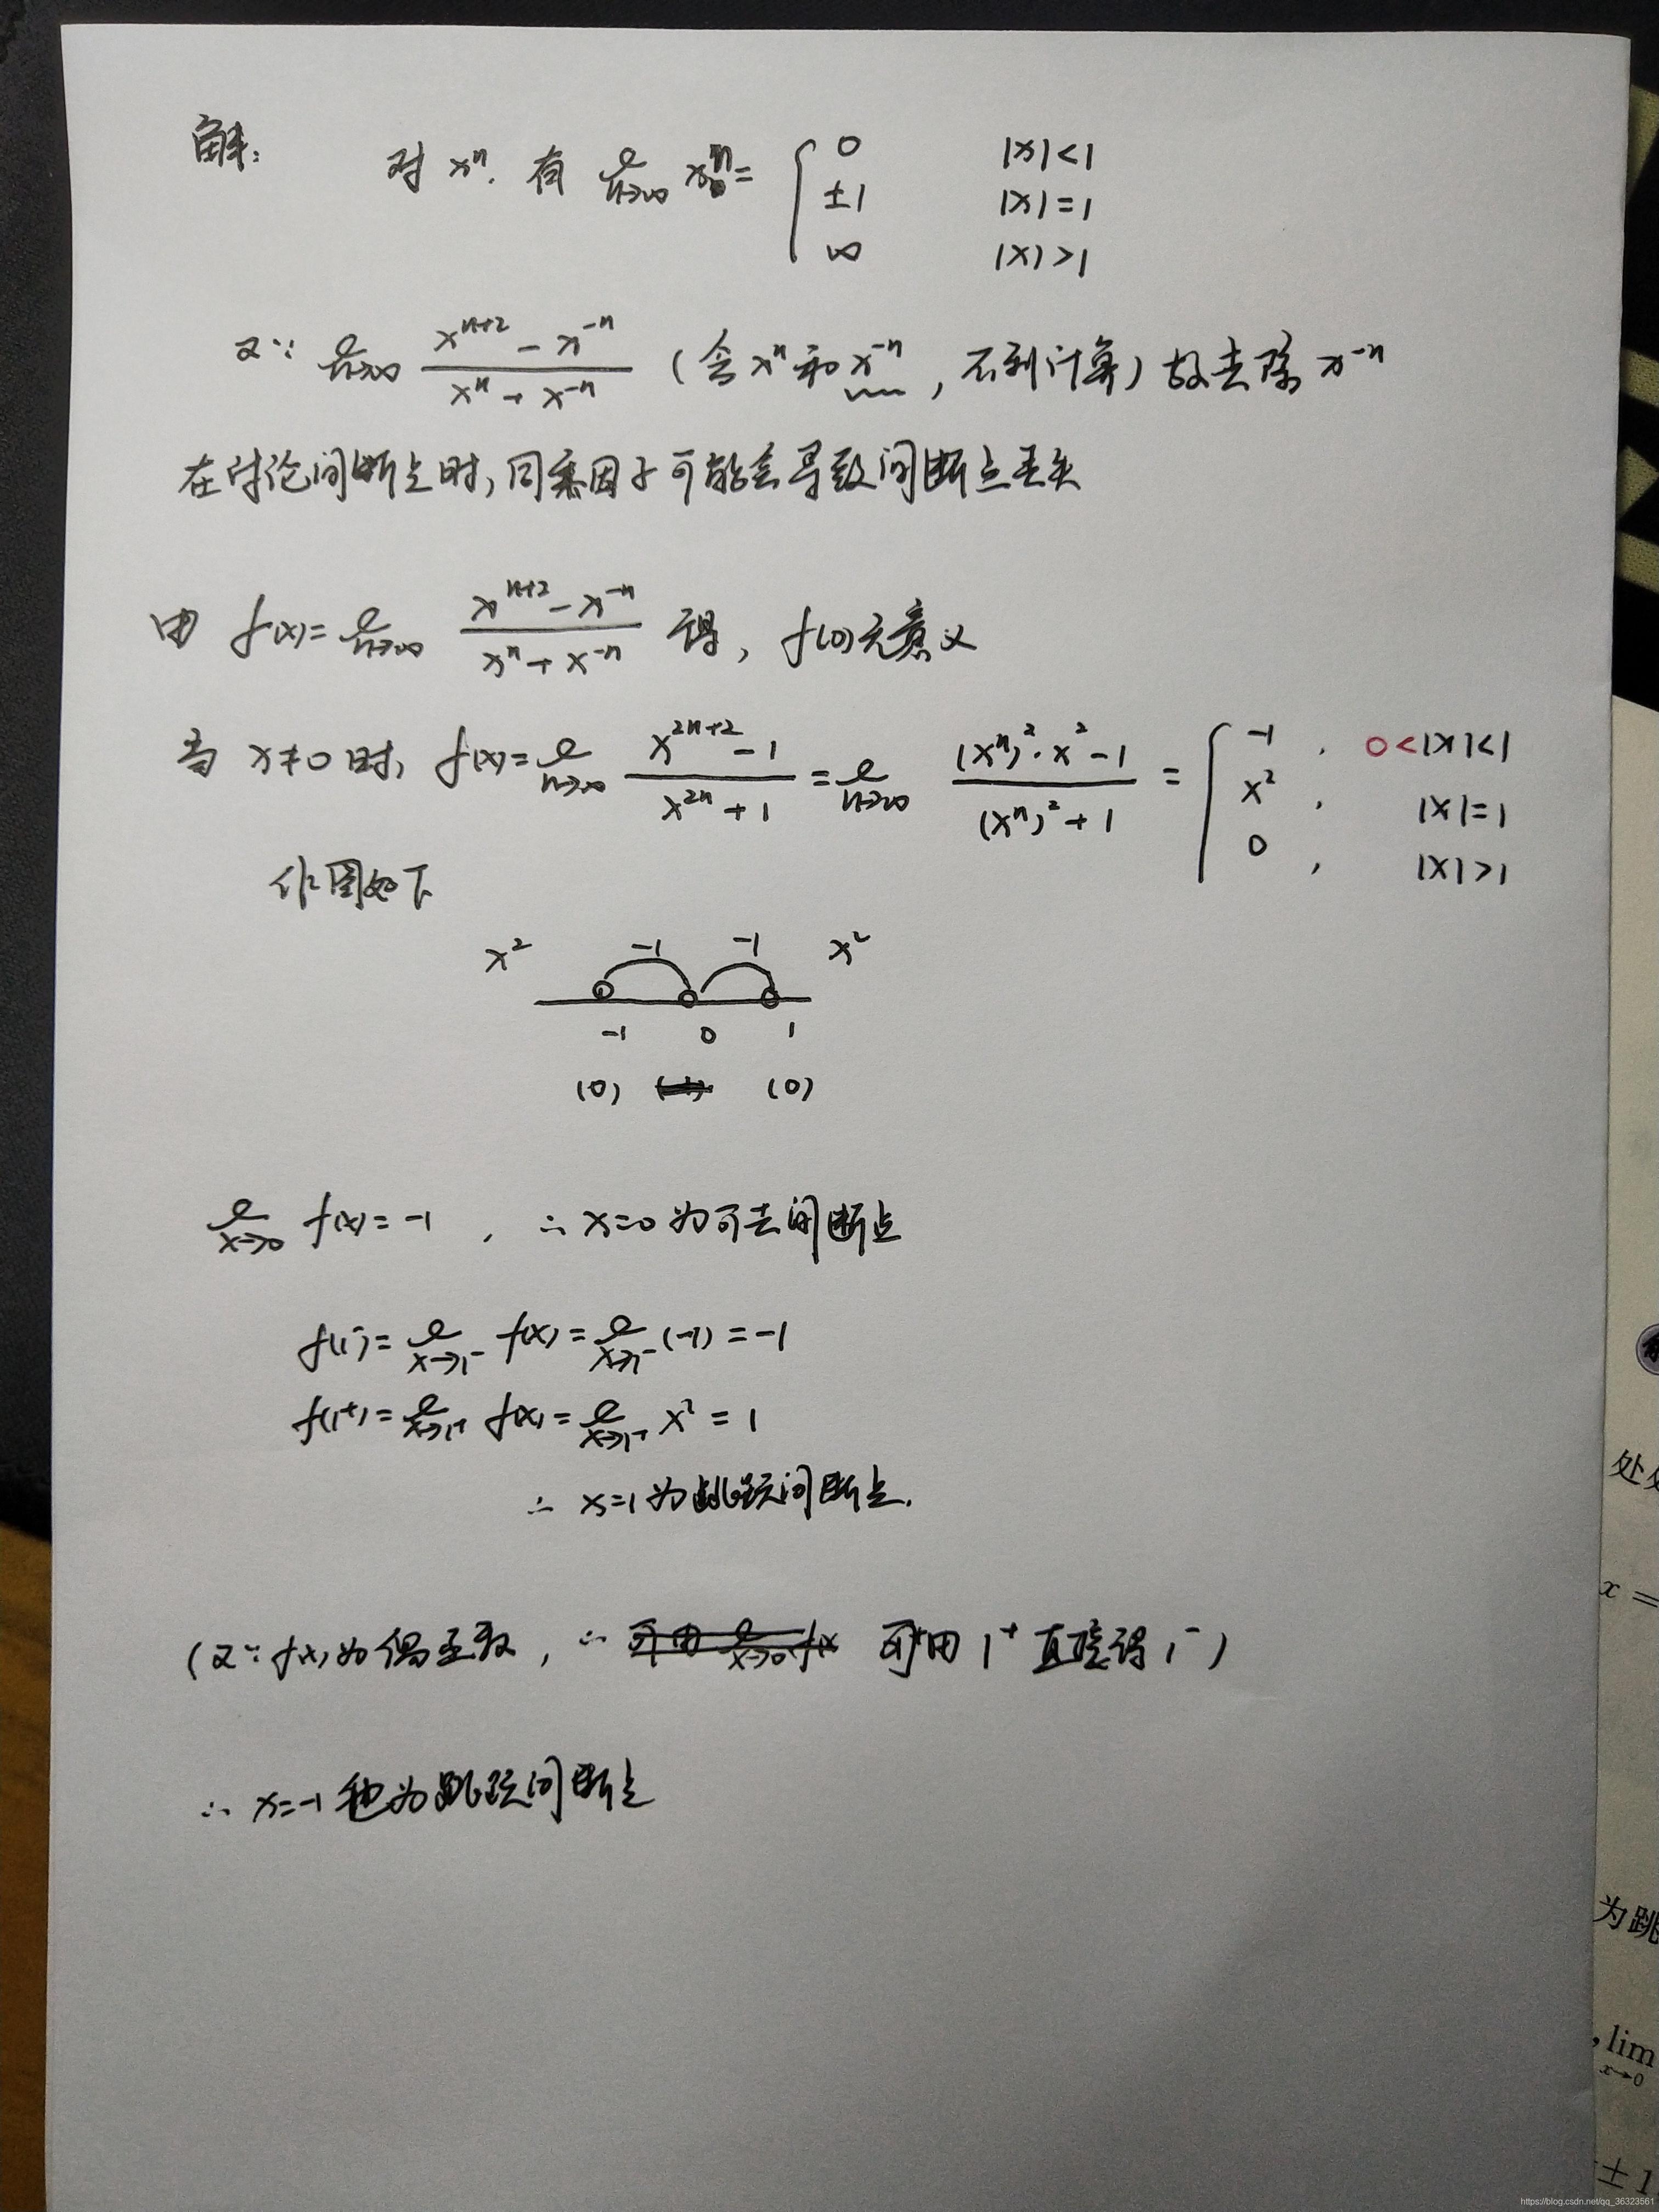 解: 对 xⁿ. 有 lim_{n→∞} xⁿ = { 0 |x|<1
±1 |x|=1
∞ |x|>1
又∵ lim_{n→∞} (x^{n+2} - x^{-n})/(xⁿ + x^{-n}) (含 xⁿ 和 x^{-n}, 不利计算) 故去除 x^{-n}
在讨论间断点时, 同乘因子可能会导致间断点丢失
由 f(x) = lim_{n→∞} (x^{n+2} - x^{-n})/(xⁿ + x^{-n}) 得, f(0)无意义
当 x≠0 时, f(x) = lim_{n→∞} (x^{2n+2} - 1)/(x^{2n} + 1) = lim_{n→∞} ((xⁿ)²·x² - 1)/((xⁿ)² + 1) = { -1 , 0<|x|<1
x² , |x|=1
0 , |x|>1
作图如下
x² -1 -1 x²
-1 0 1
(0) (0)
lim_{x→0} f(x) = -1 , ∴ x=0 为可去间断点
f(1⁻) = lim_{x→1⁻} f(x) = lim_{x→1⁻} (-1) = -1
f(1⁺) = lim_{x→1⁺} f(x) = lim_{x→1⁺} x² = 1
∴ x=1 为跳跃间断点.
(又∵ f(x) 为偶函数, ∴ 可用 1⁺ 直接得 1⁻)
∴ x=-1 也为跳跃间断点
处处
x =
为跳
, lim_{x→0}
±1
https://blog.csdn.net/qq_36323561